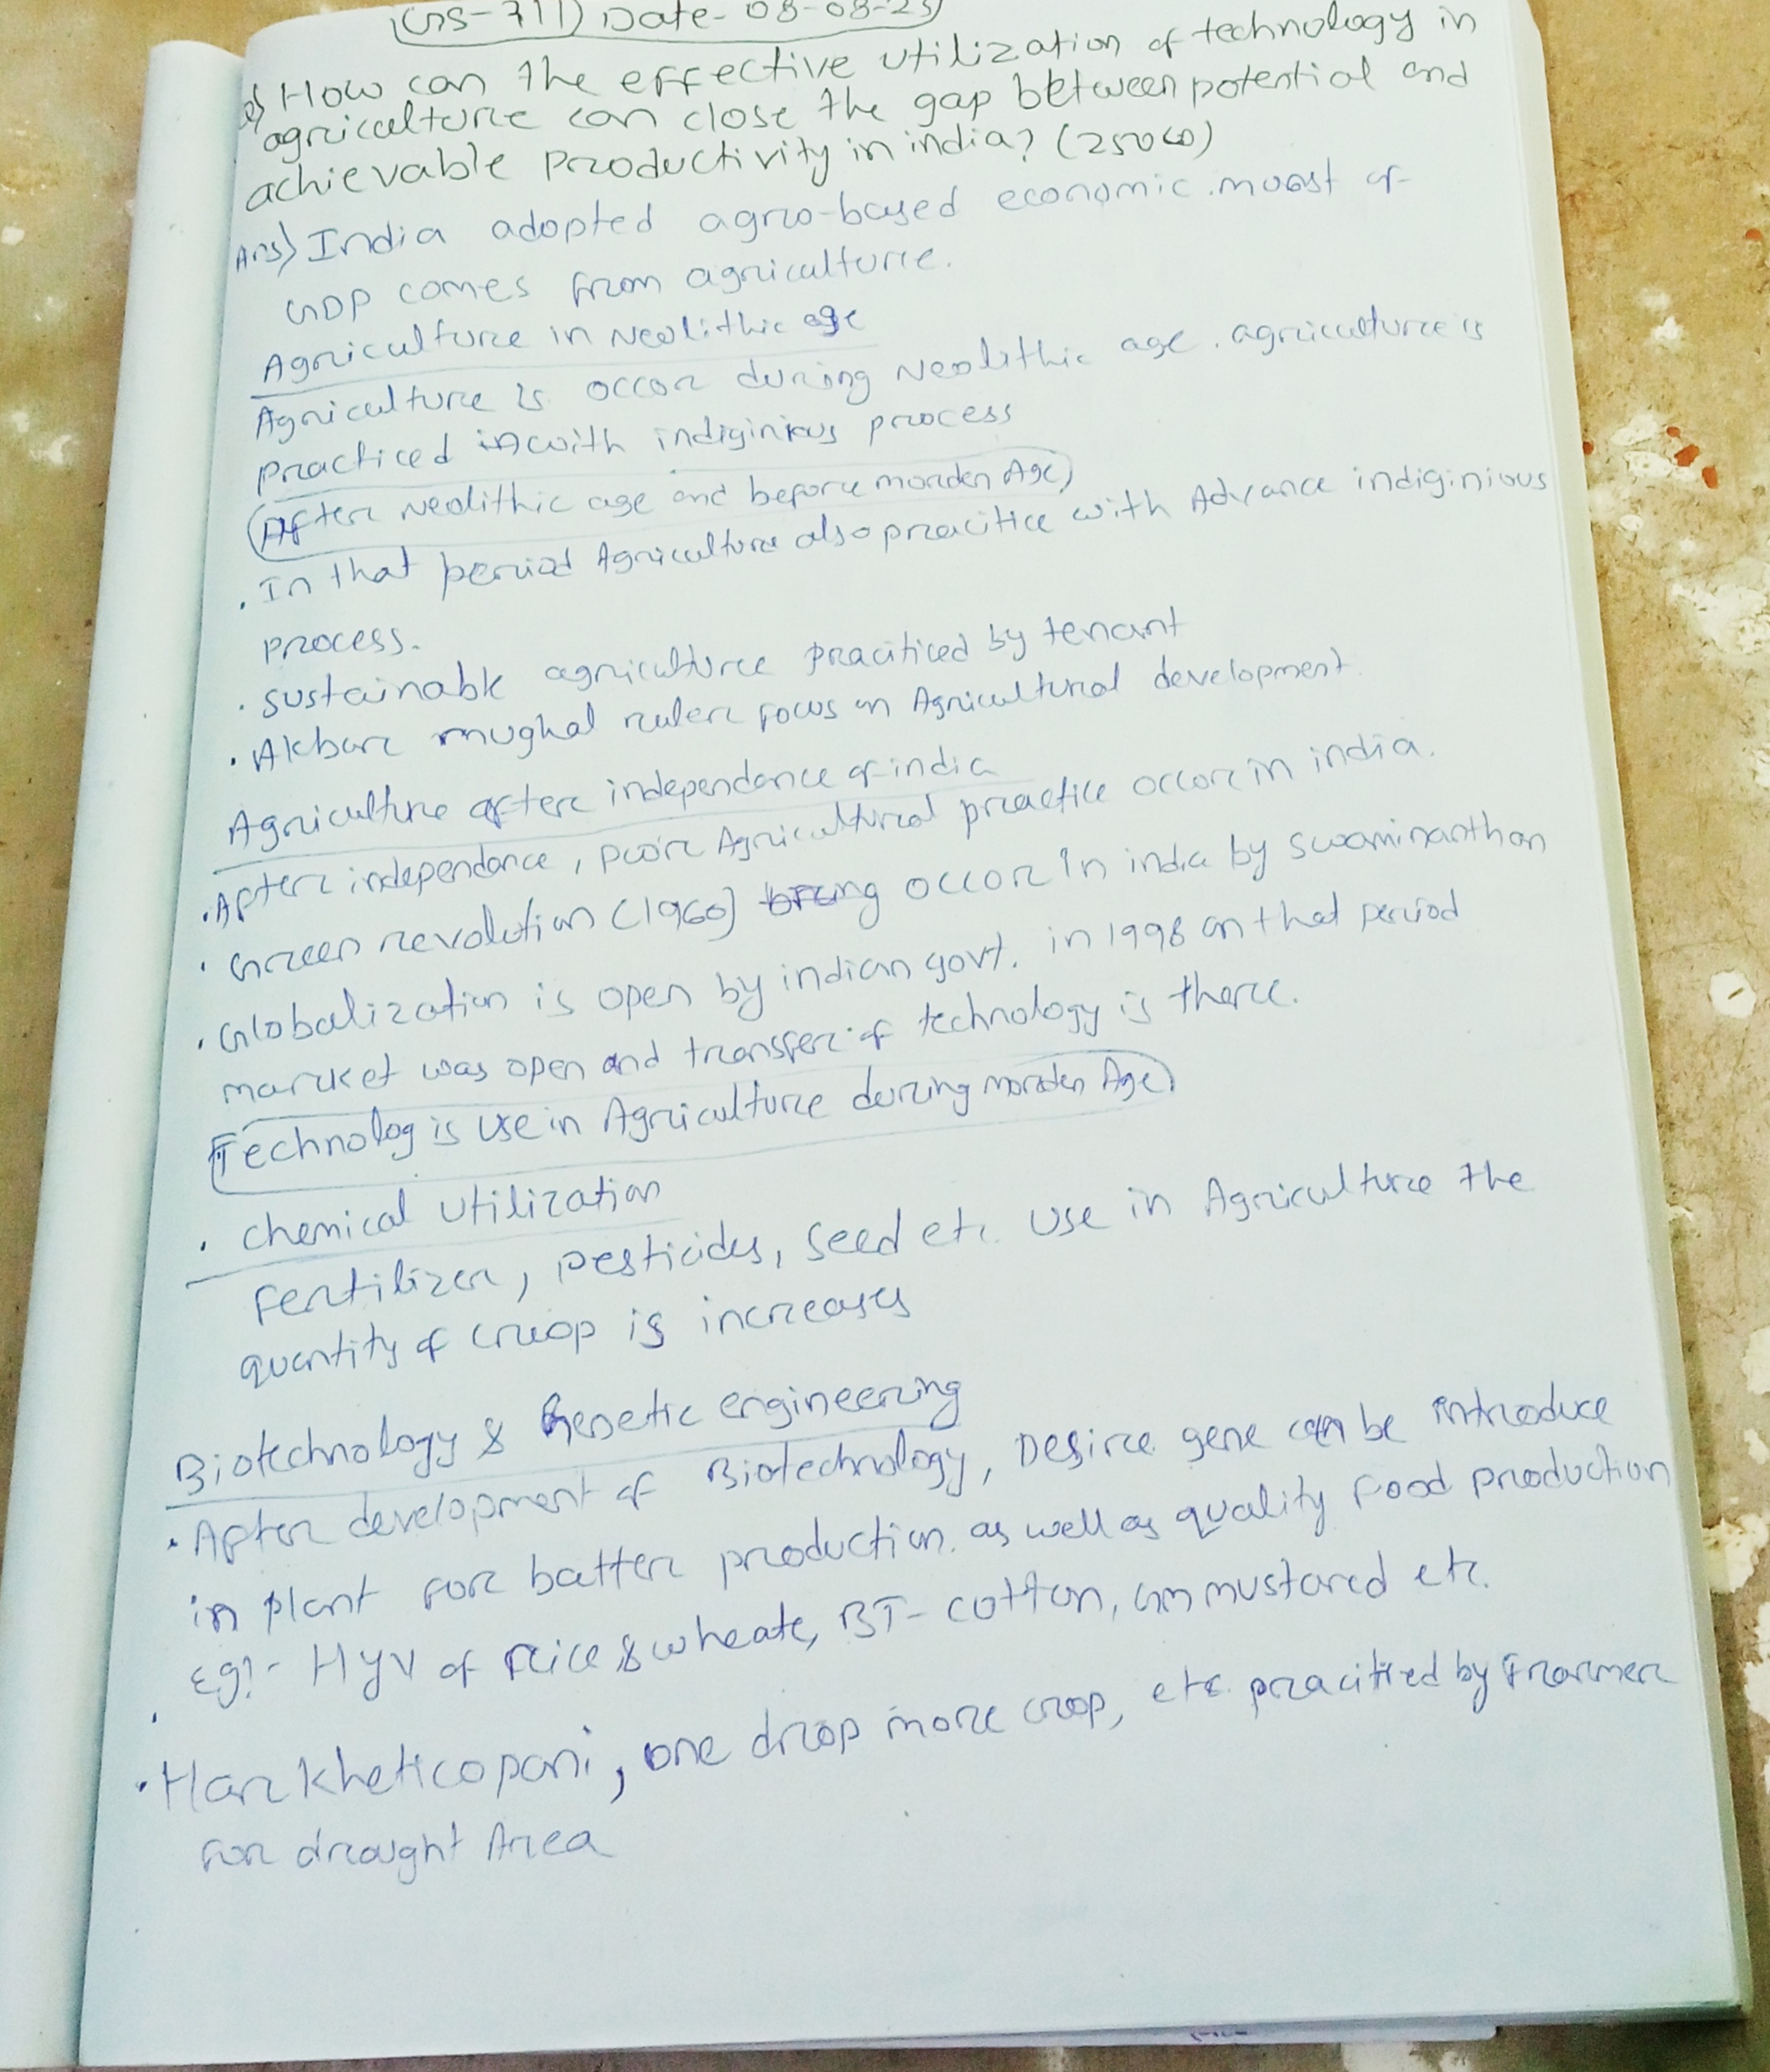 (GS-III) Date- 08-08-25
Q) How can the effective utilization of technology in
agriculture can close the gap between potential and
achievable productivity in india? (250w)
Ans) India adopted agro-based economic. moast of
GDP comes from agriculture.
Agriculture in Neolithic age
Agriculture is occor during Neolithic age. agriculture is
practiced with indiginious process
After Neolithic age and before morden Age
. In that period Agriculture also pracitice with Advance indiginious
process.
. sustainable agriculture praciticed by tenant
. Akbar mughal ruler focus on Agricultural development.
Agriculture after independance of india
. After independance, poor Agricultural practice occor in india.
. Green revolution (1960) occor in india by swaminanthan
. Globalization is open by indian govt. in 1998 on that period
market was open and transfer of technology is there.
Technolog is use in Agriculture during morden Age
. chemical utilization
Fertilizer, pesticides, seed etc. use in Agriculture the
quantity of crop is increases
Biotechnology & Genetic engineering
. After development of Biotechnology, Desire gene can be introduce
in plant for batter production. as well as quality food production
Eg:- HYV of rice & wheate, BT-cotton, GM mustared etc.
. Har khet ko pani, one drop more crop, etc. pracitied by Frarmer
for drought Area